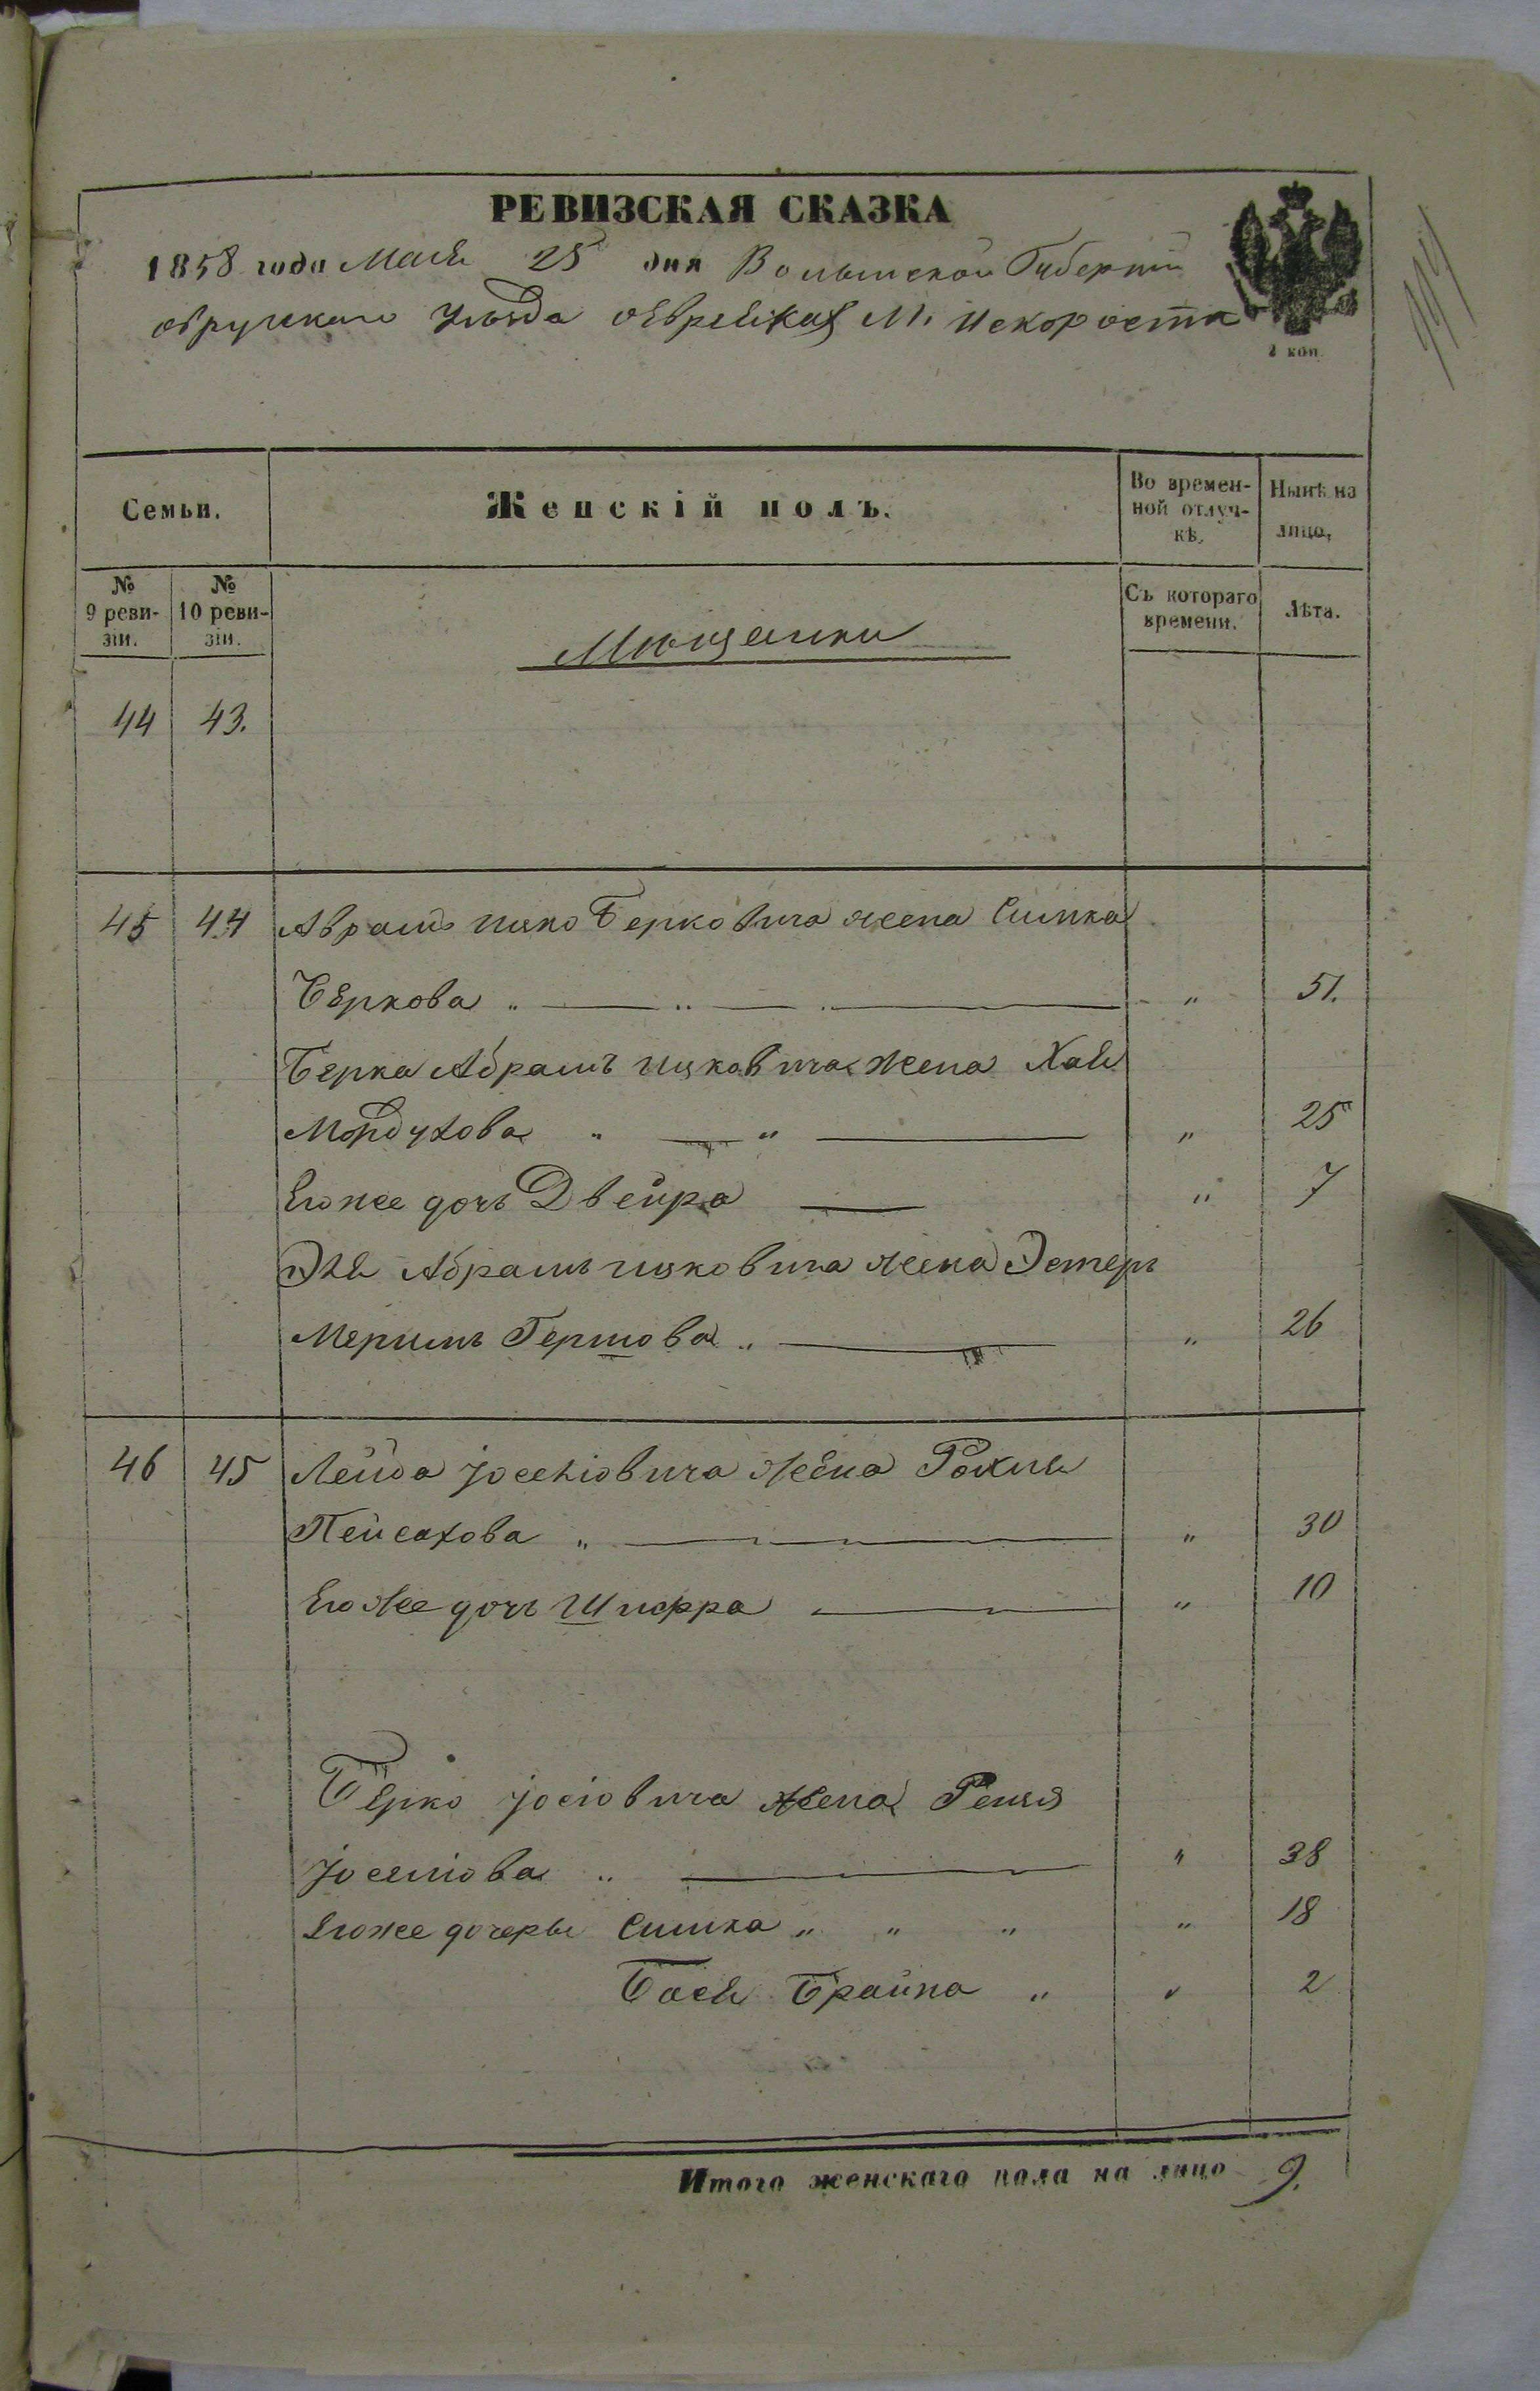 РЕВИЗСКАЯ СКАЗКА
1858 года Мая 25 дня Волынской Губерніи
овручскаго Уѣзда оевреяхъ М. Искорости
2 коп.
Семьи.
Женскій полъ.
Во времен-
ной отлуч-
кѣ.
Нынѣ на
лицо,
№
9 реви-
зіи.
№
10 реви-
зіи.
Съ котораго
времени.
Лѣта.
Мѣщанки
44 43.
45 44 Аврамъ ицко Берковича жена Симка
Беркова " — " — " 51.
Берка Абрамъ ицковича жена Хая
Мордухова " — " — " 25
Егоже дочь Двейра — " 7
Эля Абрамъ ицковича жена Эстеръ
Меримъ Гершова " — " 26
46 45 Лейба Іосевіовича жена Рохля
Пейсахова " — " 30
Егоже дочь Шифра — " 10
Берко Іосіовича жена Рейзя
Іосеміова " — " 38
Егоже дочеры Симка " " " " 18
Бася Брайна " " 2
Итого женскаго пола на лицо 9.